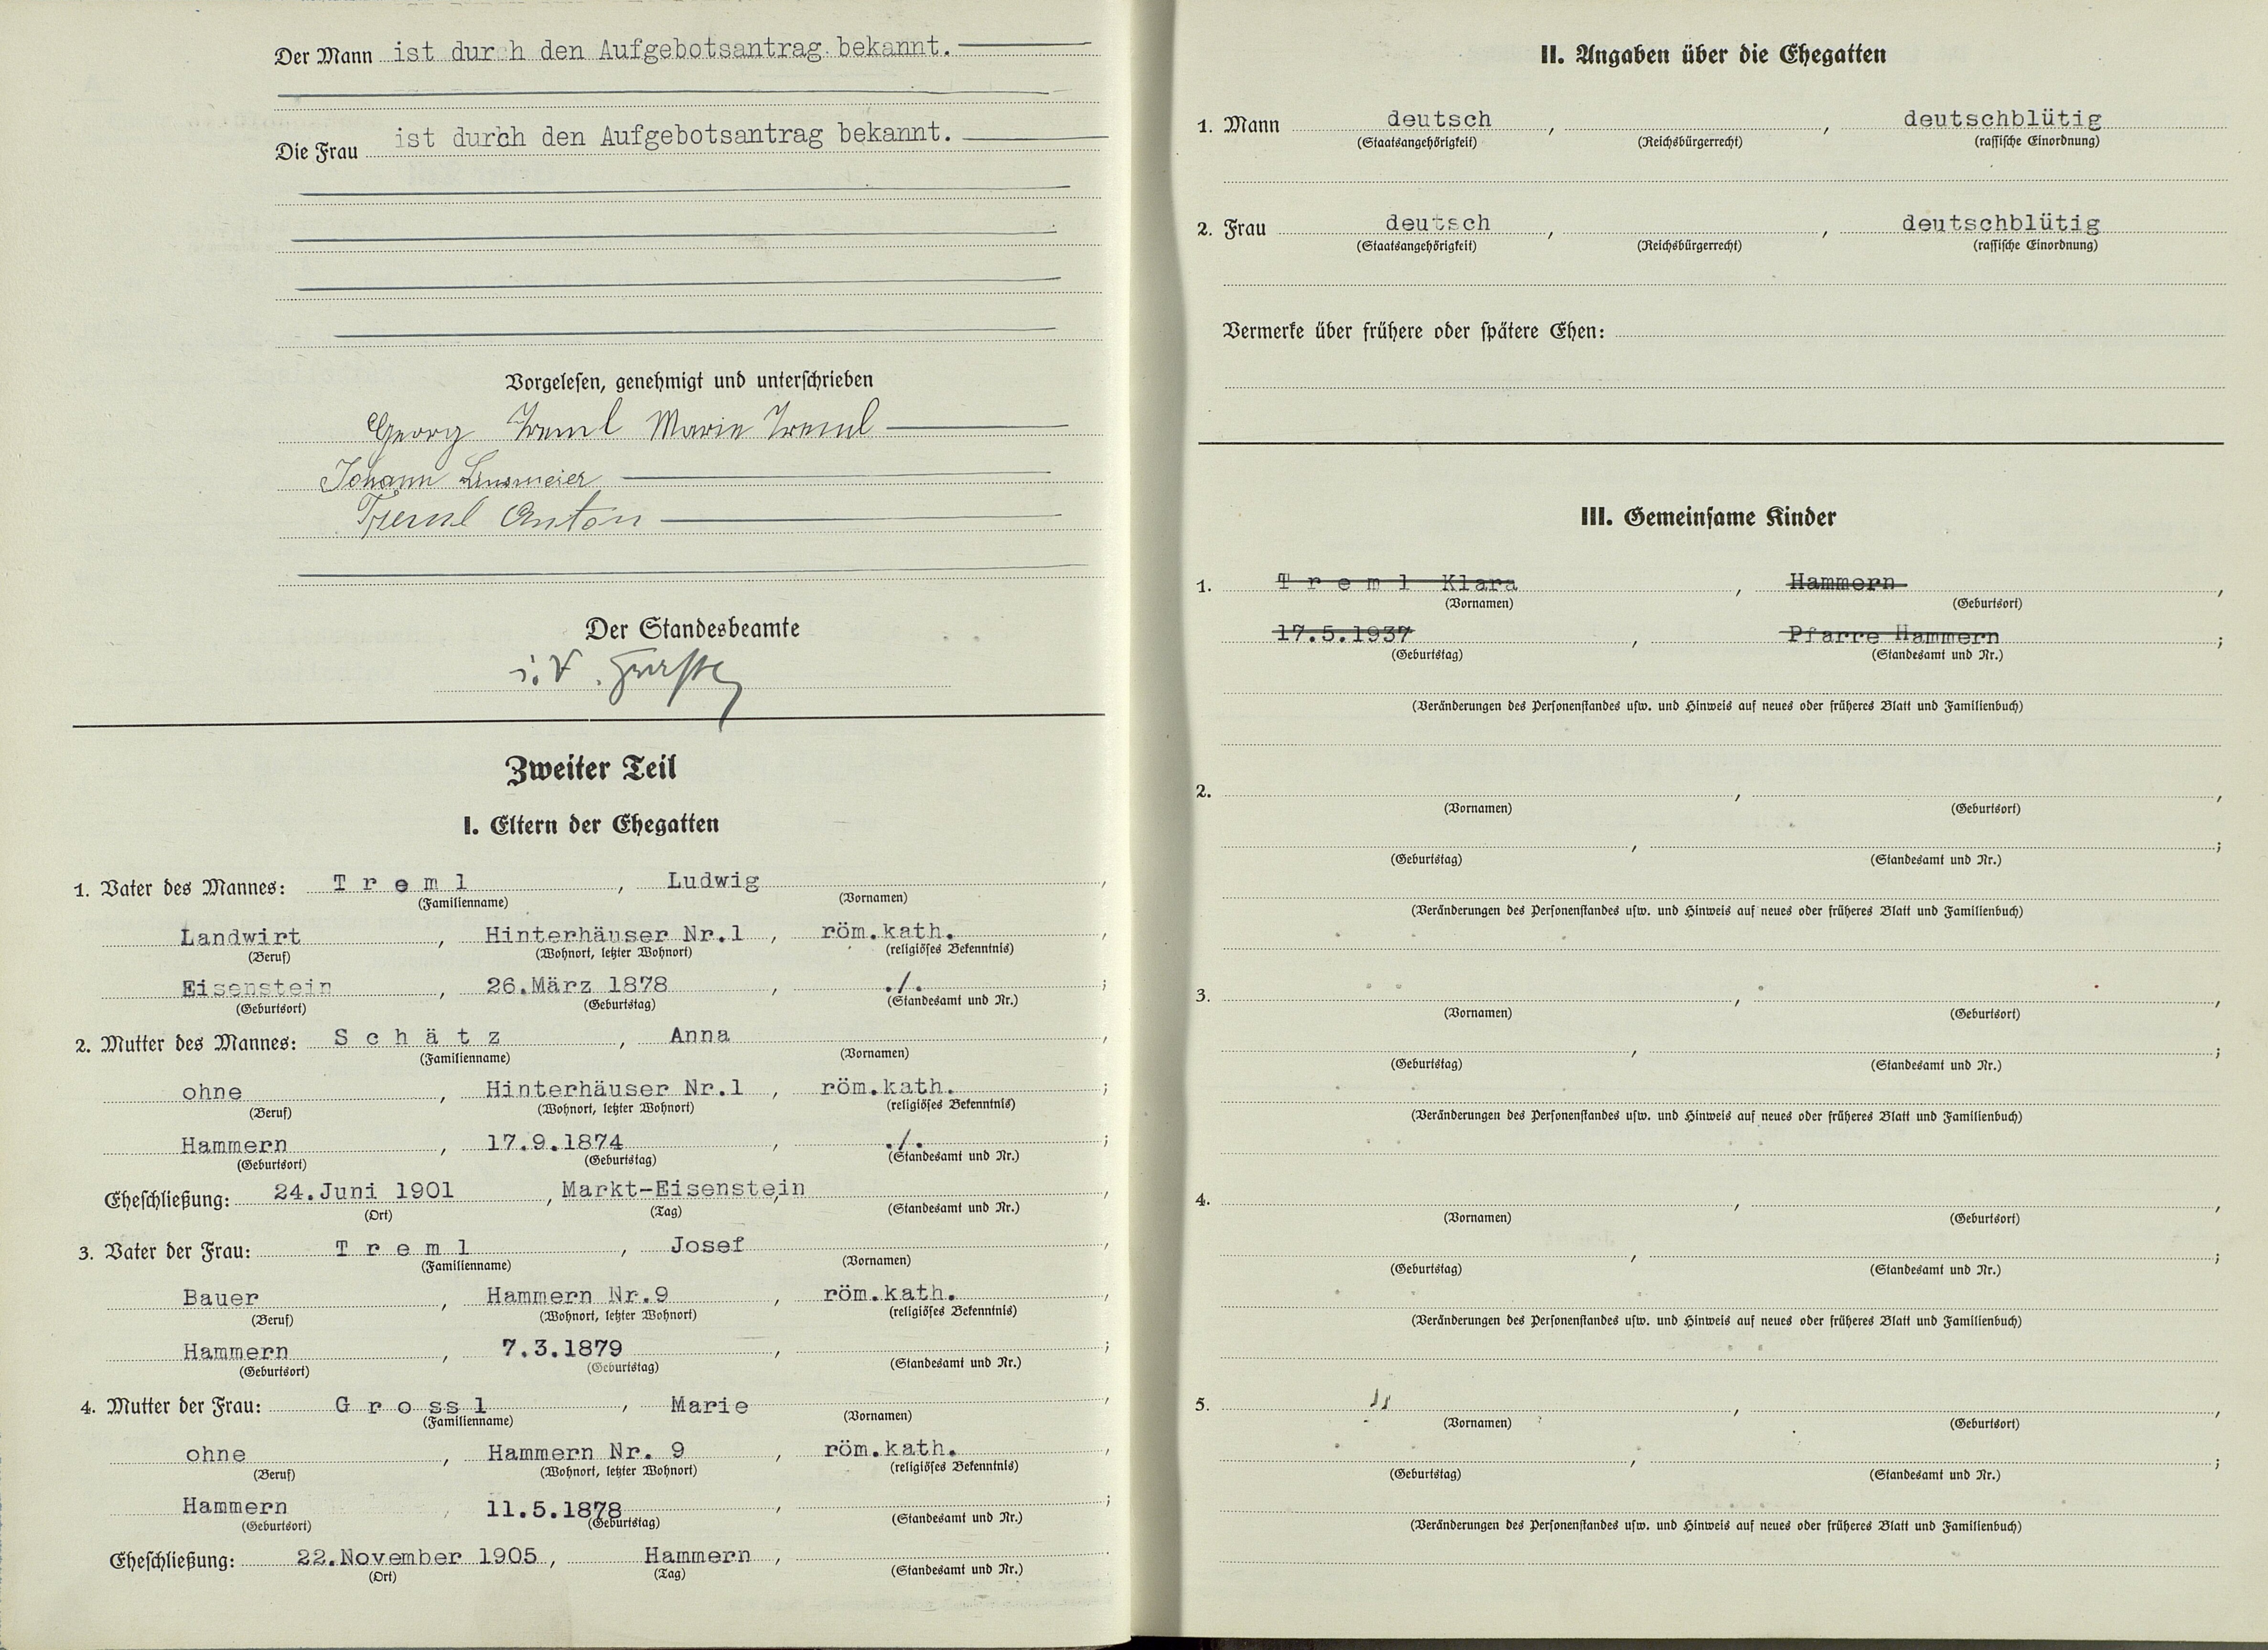 Der Mann ist durch den Aufgebotsantrag bekannt.
Die Frau ist durch den Aufgebotsantrag bekannt.
Vorgelesen, genehmigt und unterschrieben
Georg Treml Marie Treml
Johann
Treml Anton
Der Standesbeamte
i.V.
Zweiter Teil
I. Eltern der Ehegatten
1. Vater des Mannes: T r e m l , Ludwig ,
(Familienname) (Vornamen)
Landwirt , Hinterhäuser Nr.1 , röm.kath. ,
(Beruf) (Wohnort, letzter Wohnort) (religiöses Bekenntnis)
Eisenstein , 26.März 1878 , ./. ;
(Geburtsort) (Geburtstag) (Standesamt und Nr.)
2. Mutter des Mannes: S c h ä t z , Anna ,
(Familienname) (Vornamen)
ohne , Hinterhäuser Nr.1 , röm.kath. ;
(Beruf) (Wohnort, letzter Wohnort) (religiöses Bekenntnis)
Hammern , 17.9.1874 , ./. ;
(Geburtsort) (Geburtstag) (Standesamt und Nr.)
Eheschließung: 24.Juni 1901 , Markt-Eisenstein , ,
(Ort) (Tag) (Standesamt und Nr.)
3. Vater der Frau: T r e m l , Josef ,
(Familienname) (Vornamen)
Bauer , Hammern Nr.9 , röm.kath. ,
(Beruf) (Wohnort, letzter Wohnort) (religiöses Bekenntnis)
Hammern , 7.3.1879 , ;
(Geburtsort) (Geburtstag) (Standesamt und Nr.)
4. Mutter der Frau: G r o ss l , Marie ,
(Familienname) (Vornamen)
ohne , Hammern Nr. 9 , röm.kath. ,
(Beruf) (Wohnort, letzter Wohnort) (religiöses Bekenntnis)
Hammern , 11.5.1878 , ;
(Geburtsort) (Geburtstag) (Standesamt und Nr.)
Eheschließung: 22.November 1905 , Hammern , .
(Ort) (Tag) (Standesamt und Nr.)
II. Angaben über die Ehegatten
1. Mann deutsch , , deutschblütig
(Staatsangehörigkeit) (Reichsbürgerrecht) (rassische Einordnung)
2. Frau deutsch , , deutschblütig
(Staatsangehörigkeit) (Reichsbürgerrecht) (rassische Einordnung)
Vermerke über frühere oder spätere Ehen:
III. Gemeinsame Kinder
1. T r e m l Klara , Hammern ,
(Vornamen) (Geburtsort)
17.5.1937 , Pfarre Hammern ;
(Geburtstag) (Standesamt und Nr.)
(Veränderungen des Personenstandes usw. und Hinweis auf neues oder früheres Blatt und Familienbuch)
2. , ,
(Vornamen) (Geburtsort)
, ;
(Geburtstag) (Standesamt und Nr.)
(Veränderungen des Personenstandes usw. und Hinweis auf neues oder früheres Blatt und Familienbuch)
3. , ,
(Vornamen) (Geburtsort)
, ;
(Geburtstag) (Standesamt und Nr.)
(Veränderungen des Personenstandes usw. und Hinweis auf neues oder früheres Blatt und Familienbuch)
4. , ,
(Vornamen) (Geburtsort)
, ;
(Geburtstag) (Standesamt und Nr.)
(Veränderungen des Personenstandes usw. und Hinweis auf neues oder früheres Blatt und Familienbuch)
5. , ,
(Vornamen) (Geburtsort)
, ;
(Geburtstag) (Standesamt und Nr.)
(Veränderungen des Personenstandes usw. und Hinweis auf neues oder früheres Blatt und Familienbuch)